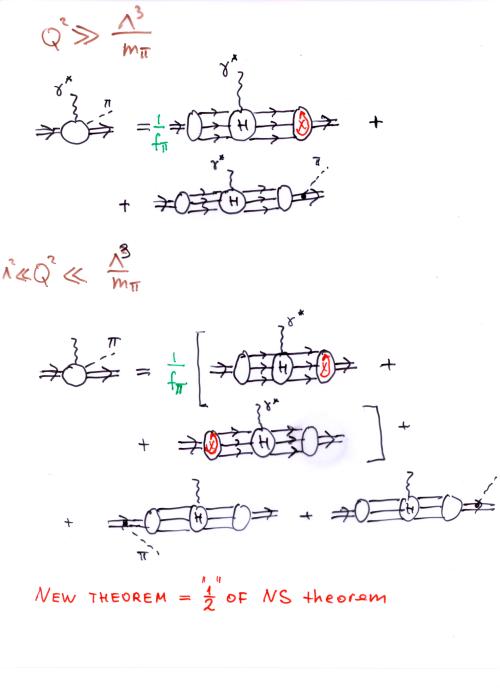 Q² ≫ Λ³/mπ
γ* π = 1/fπ γ* H χ +
+ γ* H π
Λ² ≪ Q² ≪ Λ³/mπ
π = 1/fπ [ γ* H χ +
+ χ γ* H ] +
+ π H + H
NEW THEOREM = "1/2" OF NS theorem